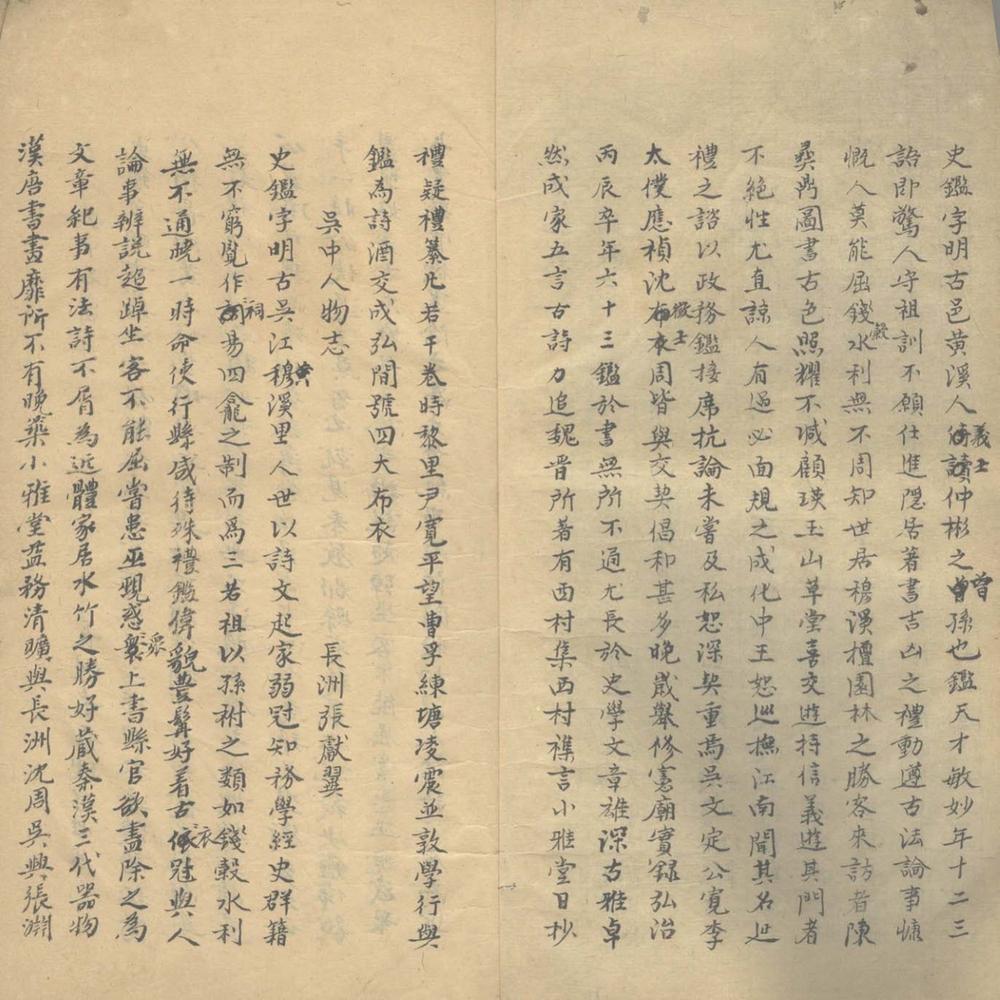 史鑑字明古邑黄溪人義士仲彬之曾孫也鑑天才敏妙年十二三
詒即驚人守祖訓不願仕進隱居著書吉凶之禮動遵古法論事慷
慨人莫能屈錢穀水利無不周知世居穆溪擅園林之勝客來訪者陳
彛鼎圖書古色照耀不減顧瑛玉山草堂喜交遊持信義遊其門者
不絶性尤直諒人有過必面規之成化中王恕巡撫江南聞其名延
禮之諮以政務鑑接席抗論未嘗及私恕深契重焉吳文定公寛李
太僕應禎沈徵士周皆與交契倡和甚多晚歲舉修憲廟實録弘治
丙辰卒年六十三鑑於書無所不通尤長於史學文章雄深古雅卓
然成家五言古詩力追魏晉所著有西村集西村襍言小雅堂日抄
禮疑禮纂凡若干卷時黎里尹寛平望曹孚練塘凌震並敦學行與
鑑為詩酒交成弘間號四大布衣
吳中人物志 長洲張獻翼
史鑑字明古吳江黄溪里人世以詩文起家弱冠知務學經史群籍
無不窮覧作祠易四龕之制而爲三若祖以孫祔之類如錢穀水利
無不通曉一時命使行縣咸待殊禮鑑偉貌豊髯好着古衣冠與人
論事辨説超踔坐客不能屈嘗患巫覡惑衆上書縣官欲盡除之為
文章紀事有法詩不屑為近體家居水竹之勝好蔵秦漢三代器物
漢唐書畫靡所不有晚築小雅堂益務清曠與長洲沈周吳興張淵